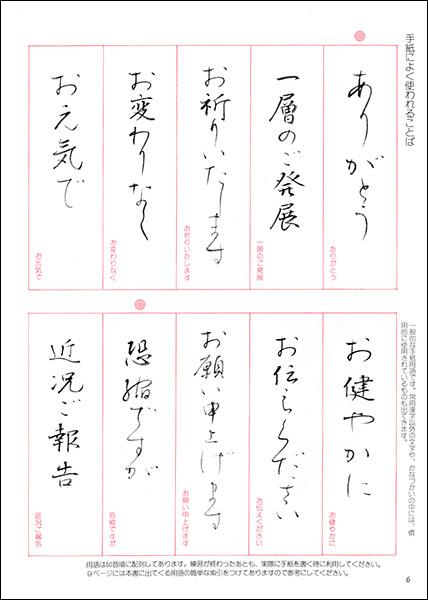 手紙によく使われることば
あ
ありがとう
ありがとう
一層のご発展
一層のご発展
お祈りいたします
お祈りいたします
お変わりなく
お変わりなく
お元気で
お元気で
一般的な手紙用語です。常用漢字以外の文字や、かなづかいの中には、慣
用的に使用されているものも出てきます。
お健やかに
お健やかに
お伝えください
お伝えください
お願い申上げます
お願い申上げます
か
恐縮ですが
恐縮ですが
近況ご報告
近況ご報告
用語は50音順に配列してあります。練習が終わったあとも、実際に手紙を書く時に利用してください。
9ページには本書に出てくる用語の簡単な索引をつけてありますので参考にしてください。
6